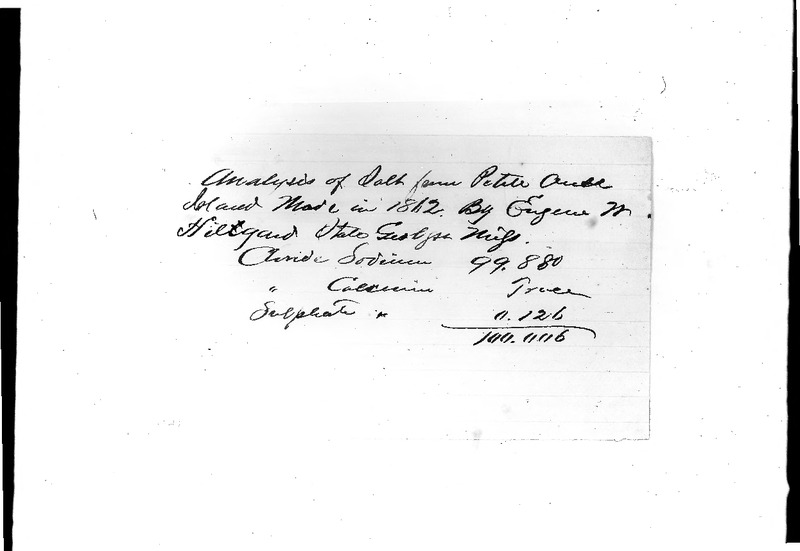 Analysis of Salt from Petite Anse
Island Made in 1862. By Eugene W.
Hilegard State Geolgist Miss.
Cloride Sodium 99.880
" Calcium Trace
Sulphate " 0.126
100.006